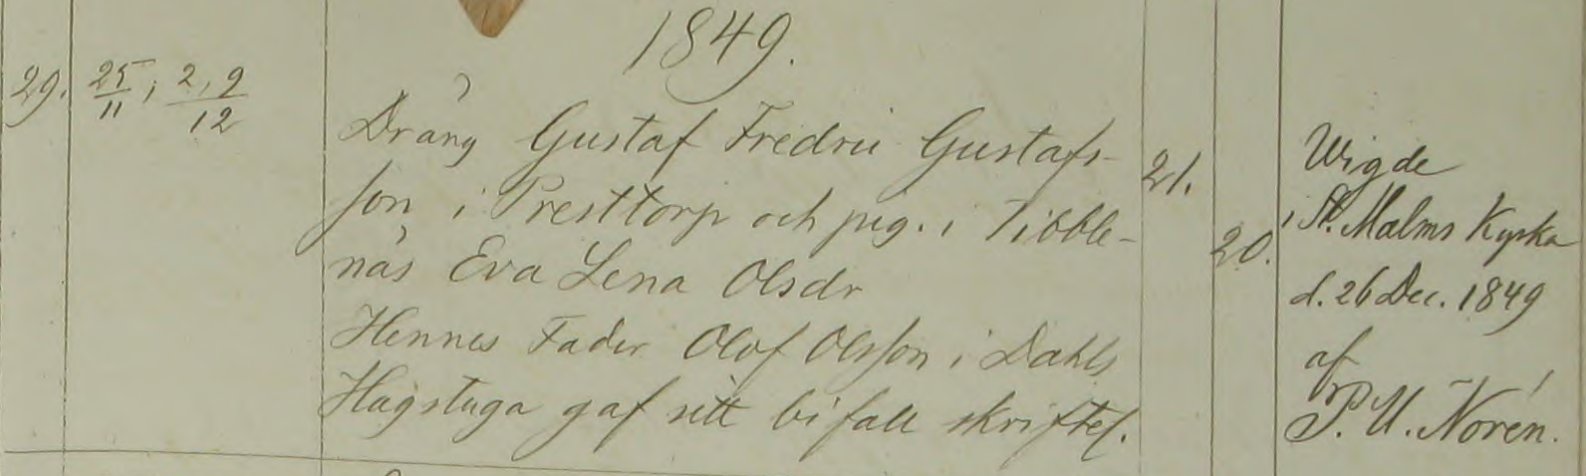 1849.
29. 25/11, 2, 9/12
Dräng Gustaf Fredric Gustafs-
son i Presttorp och pig. i Tibble-
näs Eva Lena Olsdr
Hennes Fader Olof Olsson i Dahls
Hagstuga gaf sitt bifall skriftel.
21.
20.
Wigde
i St. Malms Kyrka
d. 26 Dec. 1849
af
P. U. Norén.